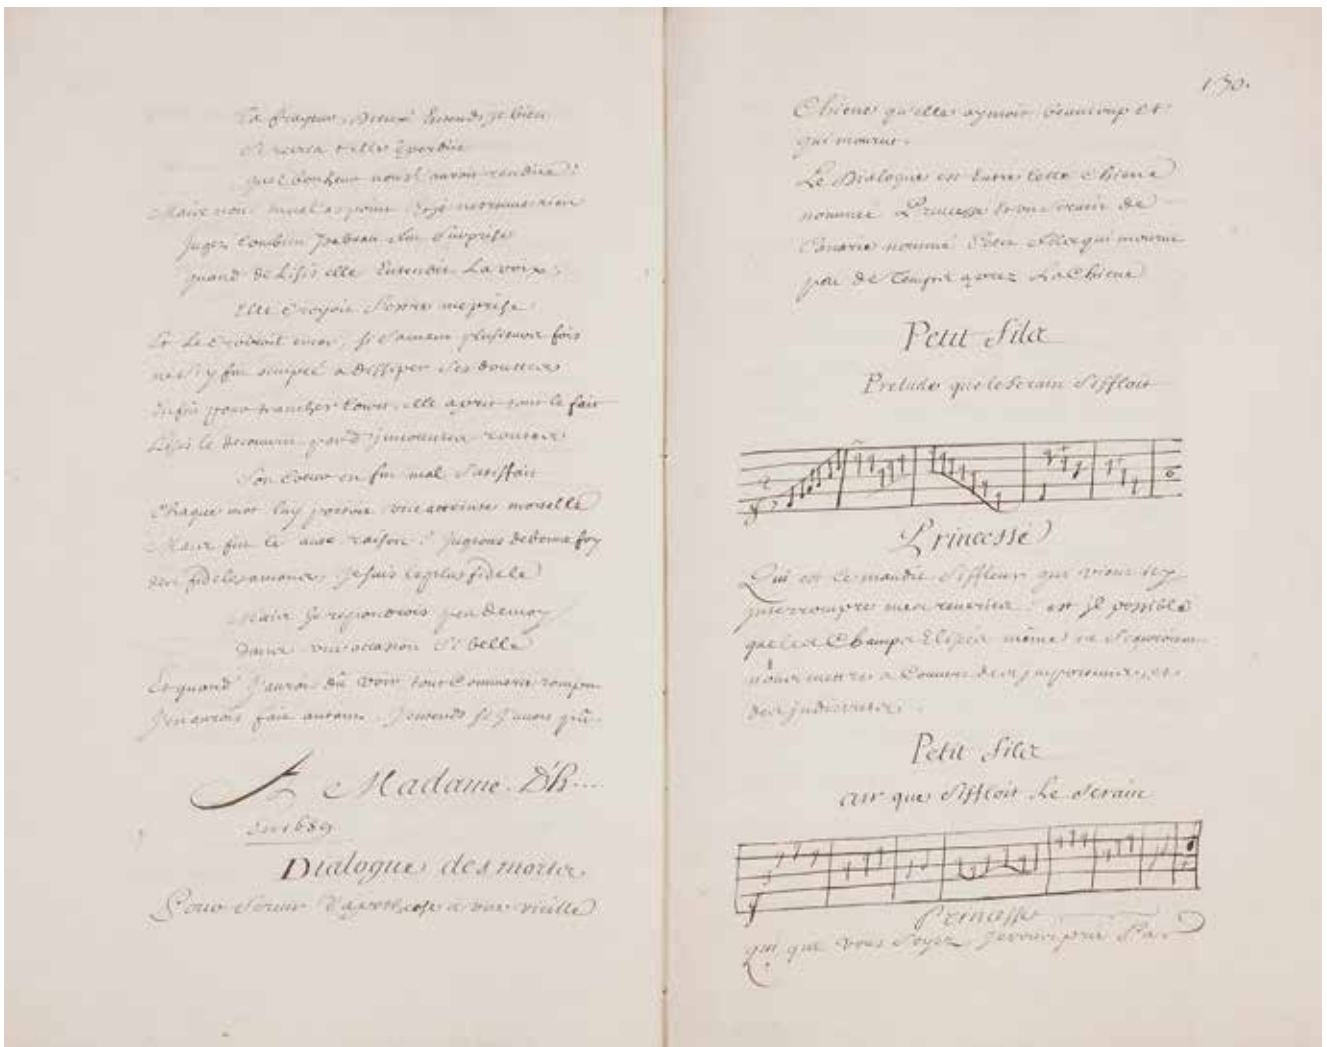 La frayeur, Dieux! Entends je bien
Se recria t elle Eperdüe
quel bonheur nous l'auroit rendüe?
Mais non
Jugez Combien Isabeau fut Surprise
quand de Lisis elle Entendit La voix;
Elle Croyoit S'estre meprise
Et Le Croiroit encor, si d'amans plusieurs fois
ne s'y fut occupé a dissiper Ses doutes
Enfin pour trancher Court, elle aprit tout le fait
Lisis le decouvrir par d'innocentes routes
Son Coeur en fut mal Satisfait
Chaque mot luy portoit une atteinte mortelle
Mais fut ce avec raison? Jugeons de bonne foy
des fideles amours, Je suis le plus fidele
Mais Je repondrois peu de moy
dans une occasion Si belle
Et quand J'aurois dû voir tout Commerce rompu
J'en aurois fait autant, J'entends si J'avois pû.
A Madame D'h....
En 1689
Dialogue des morts
Pour Servir d'apotheose a une vieille
130.
Chiene qu'elle aymoit beaucoup et
qui mourut.
Le Dialogue est Entre Cette Chiene
nommée Princesse et un Serain de
Canarie nommé Petit Filz qui mourut
peu de temps aprez La Chiene
Petit Filz
Prelude que le Serain Siffloit
Princesse
Qui est Ce maudit Siffleur qui vient icy
interrompre mes reveries? est Jl possible
que les Champs Elisées même ne Scauroient
nous mettre a Couvert des importuns, et
des indiscrets.
Petit Filz
air que Siffloit Le Serain
Princesse
Qui que vous Soyez, Je vous prie